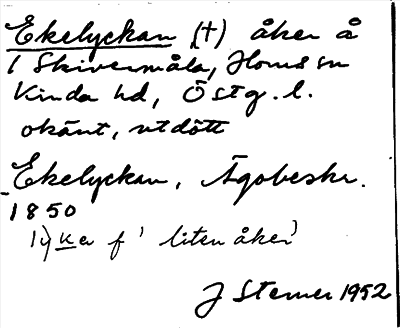 Ekelyckan (†) åker å
1 Skivermåla, Horns sn
Kinda hd, Östg. l.
okänt, utdött
Ekelyckan, Ägobeskr.
1850
J Sterner 1952